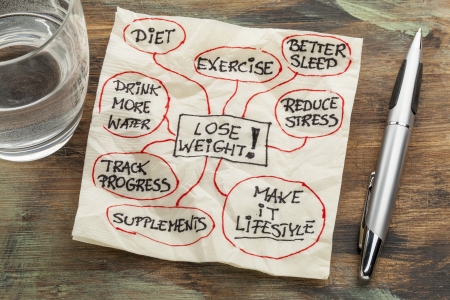 DIET
EXERCISE
BETTER
SLEEP
DRINK
MORE
WATER
REDUCE
STRESS
LOSE
WEIGHT!
TRACK
PROGRESS
MAKE
iT
LIFESTYLE
SUPPLEMENTS